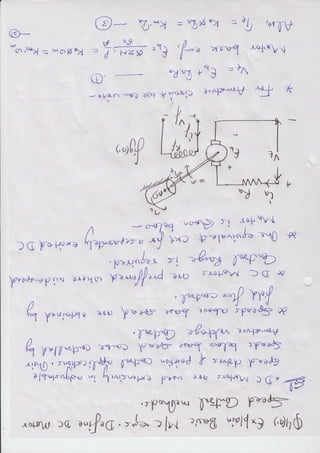 Q4(a) Explain Basic M/C eqs. Define DC motor
Speed Control methods.
Sol → DC Motors are used extensively in adjustable
speed drives & position control applications. Their
speeds below base speed can be controlled by
Armature voltage Control.
* Speeds above base speed are obtained by
field flux control.
* DC Motors are preffered where wide speed
Control Range is required.
* One equivalent ckt for separately excited DC
Motor is shown below –
ia Ra
+
Vt
Eb
Rf
+ Vf -
Load
fig(a).
-
* For Armature Circuit we can write –
Vt = Eb + IaRa — ①
Motor back emf, Eb = ΦZN/60 · P/A = KaΦωm = Km·ωm — ②
Also, Te = KaΦIa = Km·Ia — ③